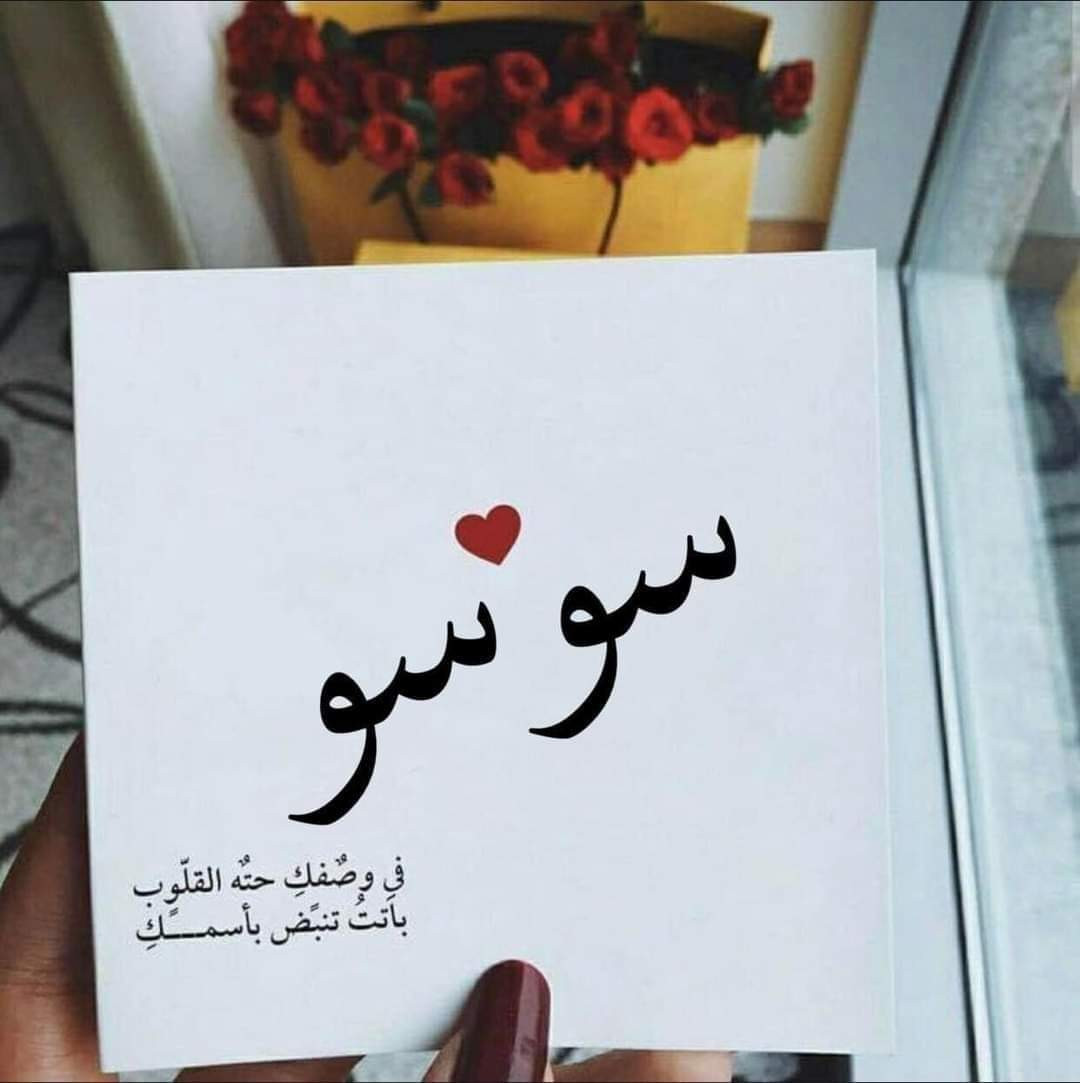 سوسو
في وصٌفكِ حتٌه القلّوب
باتتُ تنبًض بأسمـــكًِ